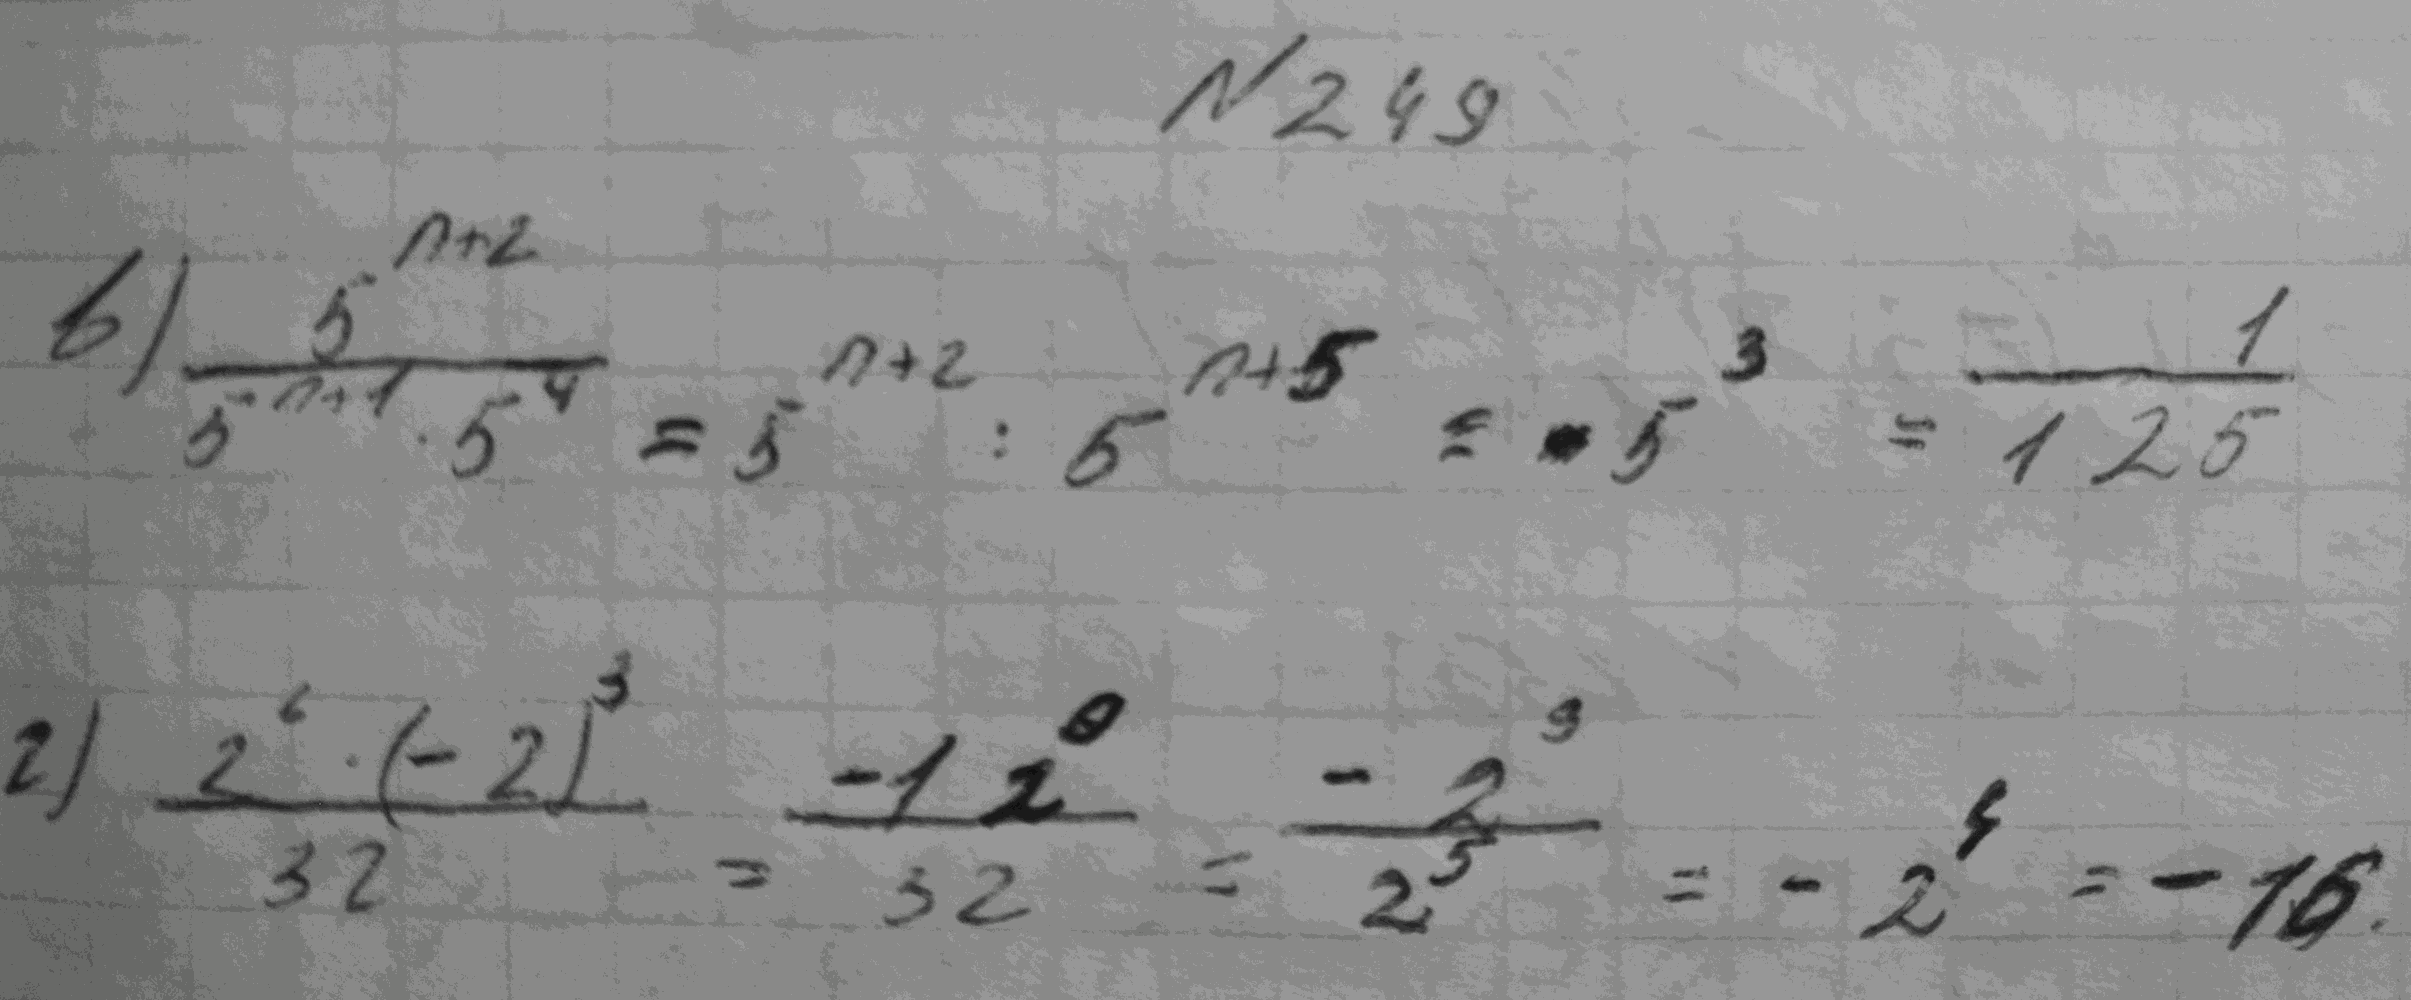 N 249
в) 5^(n+2) / (5^(n+1) · 5^4) = 5^(n+2) : 5^(n+5) = 5^3 = 1/125
г) 2^6 · (-2)^3 / 32 = / 32 = -2^9 / 2^5 = -2^4 = -16.